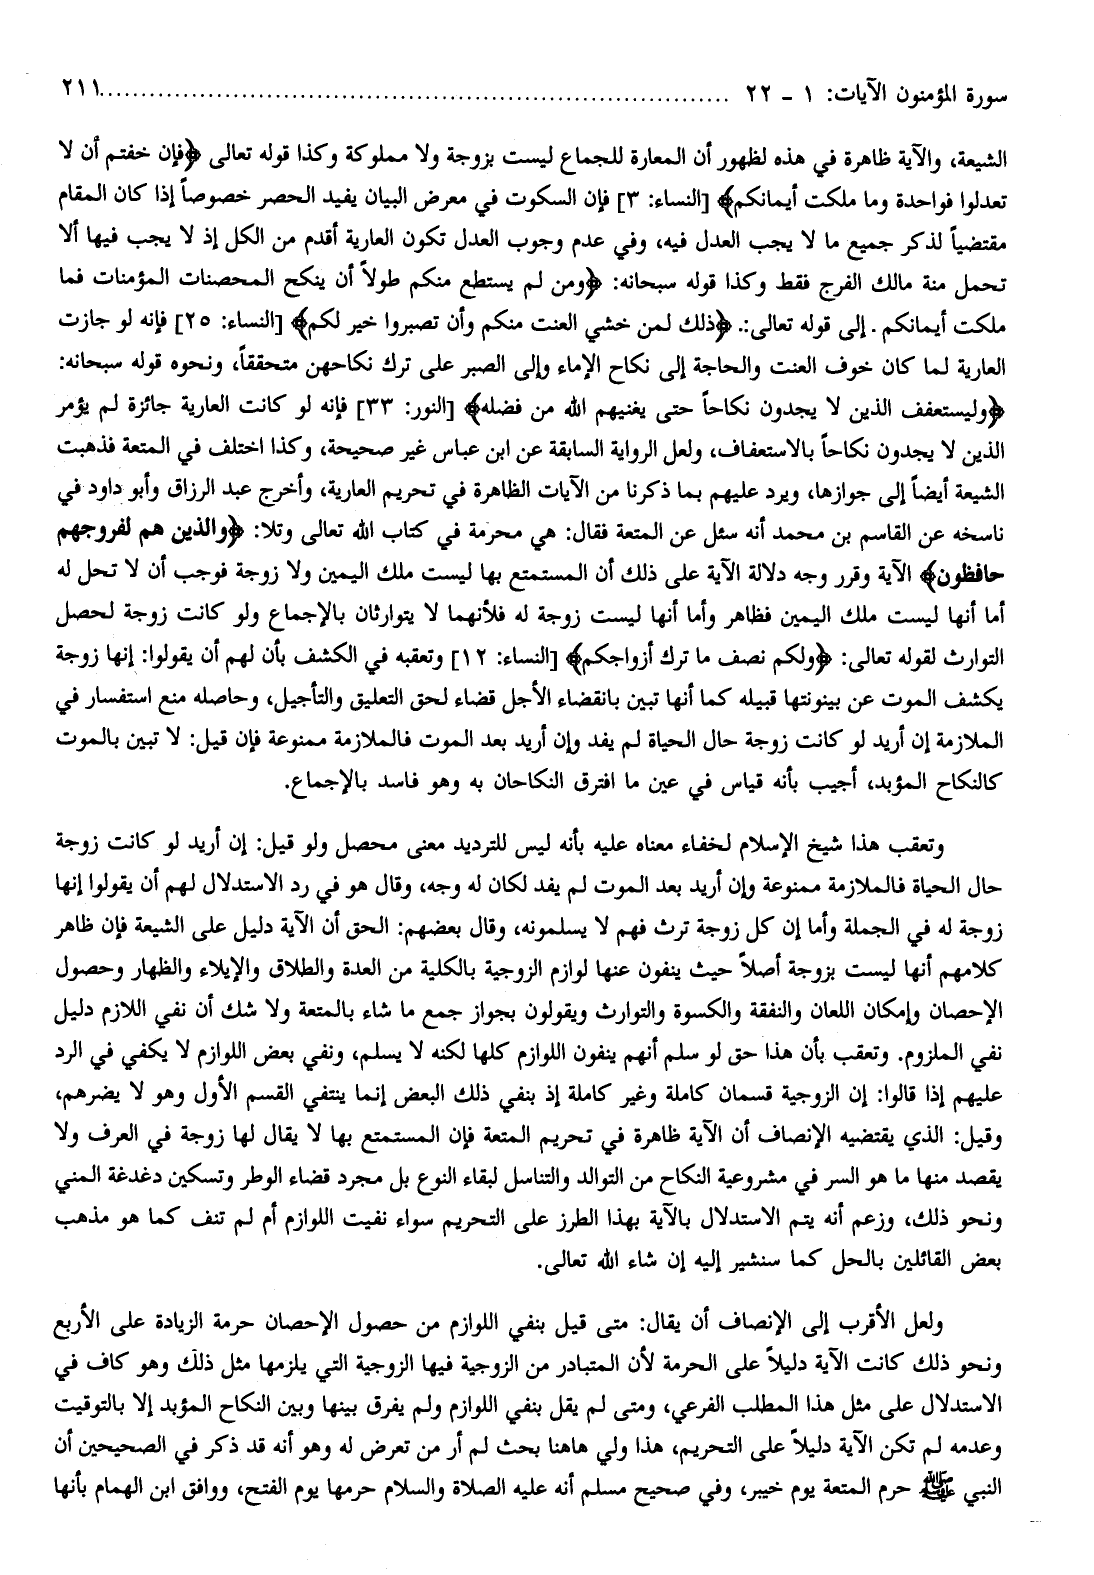 سورة المؤمنون الآيات: ١ - ٢٢ ........................................................................... ٢١١
الشيعة، والآية ظاهرة في هذه لظهور أن المعارة للجماع ليست بزوجة ولا مملوكة وكذا قوله تعالى ﴿فإن خفتم أن لا
تعدلوا فواحدة وما ملكت أيمانكم﴾ [النساء: ٣] فإن السكوت في معرض البيان يفيد الحصر خصوصاً إذا كان المقام
مقتضياً لذكر جميع ما لا يجب العدل فيه، وفي عدم وجوب العدل تكون العارية أقدم من الكل إذ لا يجب فيها ألا
تحمل منة مالك الفرج فقط وكذا قوله سبحانه: ﴿ومن لم يستطع منكم طولاً أن ينكح المحصنات المؤمنات فما
ملكت أيمانكم . إلى قوله تعالى:. ﴿ذلك لمن خشي العنت منكم وأن تصبروا خير لكم﴾ [النساء: ٢٥] فإنه لو جازت
العارية لما كان خوف العنت والحاجة إلى نكاح الإماء وإلى الصبر على ترك نكاحهن متحققاً، ونحوه قوله سبحانه:
﴿وليستعفف الذين لا يجدون نكاحاً حتى يغنيهم الله من فضله﴾ [النور: ٣٣] فإنه لو كانت العارية جائزة لم يؤمر
الذين لا يجدون نكاحاً بالاستعفاف، ولعل الرواية السابقة عن ابن عباس غير صحيحة، وكذا اختلف في المتعة فذهبت
الشيعة أيضاً إلى جوازها، ويرد عليهم بما ذكرنا من الآيات الظاهرة في تحريم العارية، وأخرج عبد الرزاق وأبو داود في
ناسخه عن القاسم بن محمد أنه سئل عن المتعة فقال: هي محرمة في كتاب الله تعالى وتلا: ﴿والذين هم لفروجهم
حافظون﴾ الآية وقرر وجه دلالة الآية على ذلك أن المستمتع بها ليست ملك اليمين ولا زوجة فوجب أن لا تحل له
أما أنها ليست ملك اليمين فظاهر وأما أنها ليست زوجة له فلأنهما لا يتوارثان بالإجماع ولو كانت زوجة لحصل
التوارث لقوله تعالى: ﴿ولكم نصف ما ترك أزواجكم﴾ [النساء: ١٢] وتعقبه في الكشف بأن لهم أن يقولوا: إنها زوجة
يكشف الموت عن بينونتها قبيله كما أنها تبين بانقضاء الأجل قضاء لحق التعليق والتأجيل، وحاصله منع استفسار في
الملازمة إن أريد لو كانت زوجة حال الحياة لم يفد وإن أريد بعد الموت فالملازمة ممنوعة فإن قيل: لا تبين بالموت
كالنكاح المؤبد، أجيب بأنه قياس في عين ما افترق النكاحان به وهو فاسد بالإجماع.
وتعقب هذا شيخ الإسلام لخفاء معناه عليه بأنه ليس للترديد معنى محصل ولو قيل: إن أريد لو كانت زوجة
حال الحياة فالملازمة ممنوعة وإن أريد بعد الموت لم يفد لكان له وجه، وقال هو في رد الاستدلال لهم أن يقولوا إنها
زوجة له في الجملة وأما إن كل زوجة ترث فهم لا يسلمونه، وقال بعضهم: الحق أن الآية دليل على الشيعة فإن ظاهر
كلامهم أنها ليست بزوجة أصلاً حيث ينفون عنها لوازم الزوجية بالكلية من العدة والطلاق والإيلاء والظهار وحصول
الإحصان وإمكان اللعان والنفقة والكسوة والتوارث ويقولون بجواز جمع ما شاء بالمتعة ولا شك أن نفي اللازم دليل
نفي الملزوم. وتعقب بأن هذا حق لو سلم أنهم ينفون اللوازم كلها لكنه لا يسلم، ونفي بعض اللوازم لا يكفي في الرد
عليهم إذا قالوا: إن الزوجية قسمان كاملة وغير كاملة إذ بنفي ذلك البعض إنما ينتفي القسم الأول وهو لا يضرهم،
وقيل: الذي يقتضيه الإنصاف أن الآية ظاهرة في تحريم المتعة فإن المستمتع بها لا يقال لها زوجة في العرف ولا
يقصد منها ما هو السر في مشروعية النكاح من التوالد والتناسل لبقاء النوع بل مجرد قضاء الوطر وتسكين دغدغة المني
ونحو ذلك، وزعم أنه يتم الاستدلال بالآية بهذا الطرز على التحريم سواء نفيت اللوازم أم لم تنف كما هو مذهب
بعض القائلين بالحل كما سنشير إليه إن شاء الله تعالى.
ولعل الأقرب إلى الإنصاف أن يقال: متى قيل بنفي اللوازم من حصول الإحصان حرمة الزيادة على الأربع
ونحو ذلك كانت الآية دليلاً على الحرمة لأن المتبادر من الزوجية فيها الزوجية التي يلزمها مثل ذلك وهو كاف في
الاستدلال على مثل هذا المطلب الفرعي، ومتى لم يقل بنفي اللوازم ولم يفرق بينها وبين النكاح المؤبد إلا بالتوقيت
وعدمه لم تكن الآية دليلاً على التحريم، هذا ولي هاهنا بحث لم أر من تعرض له وهو أنه قد ذكر في الصحيحين أن
النبي ﷺ حرم المتعة يوم خيبر، وفي صحيح مسلم أنه عليه الصلاة والسلام حرمها يوم الفتح، ووافق ابن الهمام بأنها